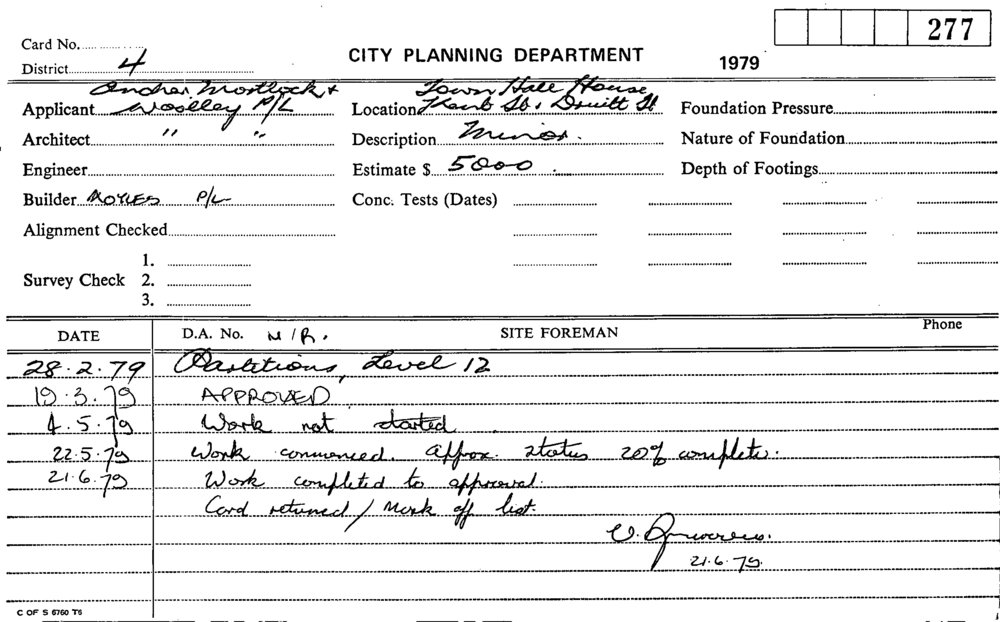 277
Card No.
District 4
CITY PLANNING DEPARTMENT
1979
Ancher Mortlock &
Applicant Woolley P/L
Town Hall House
Location Kent St. Druitt St
Foundation Pressure
Architect " "
Description Minor.
Nature of Foundation
Engineer
Estimate $ 5000
Depth of Footings
Builder P/L
Conc. Tests (Dates)
Alignment Checked
1.
Survey Check 2.
3.
DATE
D.A. No. N/R.
SITE FOREMAN
Phone
28.2.79 Partitions, Level 12
19.3.79 APPROVED
4.5.79 Work not started
22.5.79 Work commenced. Approx. status 20% complete.
21.6.79 Work completed to approval.
Card returned / Mark off list.
21.6.79.
C OF S 6760 T6